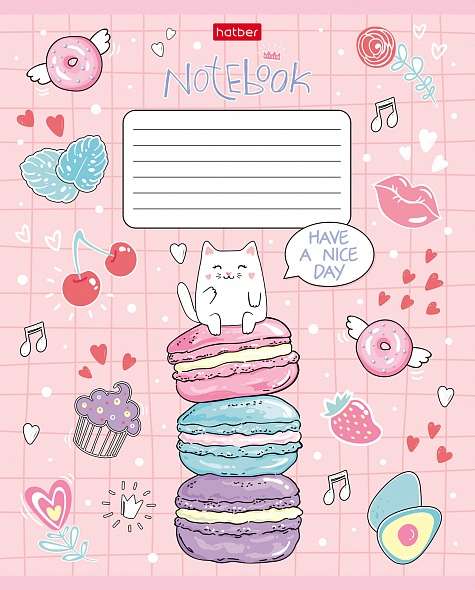 hatber
NOTEBOOK
HAVE
A NICE
DAY